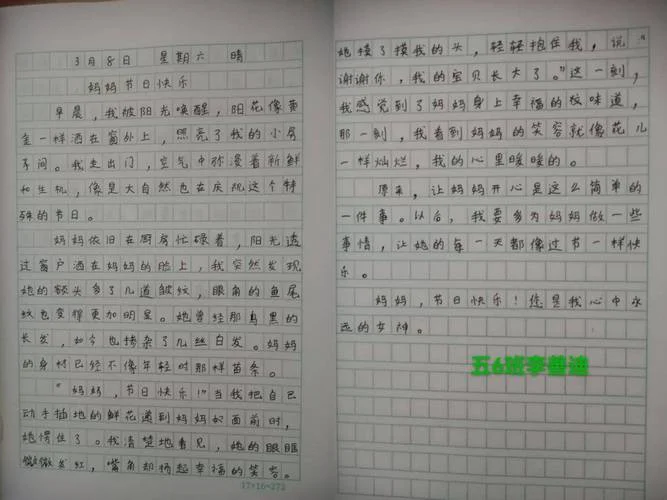 3月8日 星期六 晴
妈妈节日快乐
早晨，我被阳光唤醒，阳花像黄
金一样洒在窗外上，照亮了我的小房
子间。我走出门，空气中弥漫着新鲜
和生机，像是大自然也在庆祝这个特
殊的节日。
妈妈依旧在厨房忙碌着，阳光透
过窗户洒在妈妈的脸上，我突然发现
她的额头多了几道皱纹，眼角的鱼尾
纹也变得更加明显。她曾经那乌黑的
长发，如今也掺杂了几丝白发。妈妈
的身材已经不像年轻时那样苗条。
“妈妈，节日快乐！”当我把自己
动手插地的鲜花递到妈妈面前时，
她愣住了。我清楚地看见，她的眼眶
微微发红，嘴角却扬起幸福的笑容。
17×16=272
她摸了摸我的头，轻轻抱住我，说“
谢谢你，我的宝贝长大了。”这一刻，
我感觉到了妈妈身上幸福的味道，
那一刻，我看到妈妈的笑容就像花儿
一样灿烂，我的心里暖暖的。
原来，让妈妈开心是这么简单的
一件事。以后，我要多为妈妈做一些
事情，让她的每一天都像过节一样快
乐。
妈妈，节日快乐！您是我心中永
远的女神。
五6班李
迪